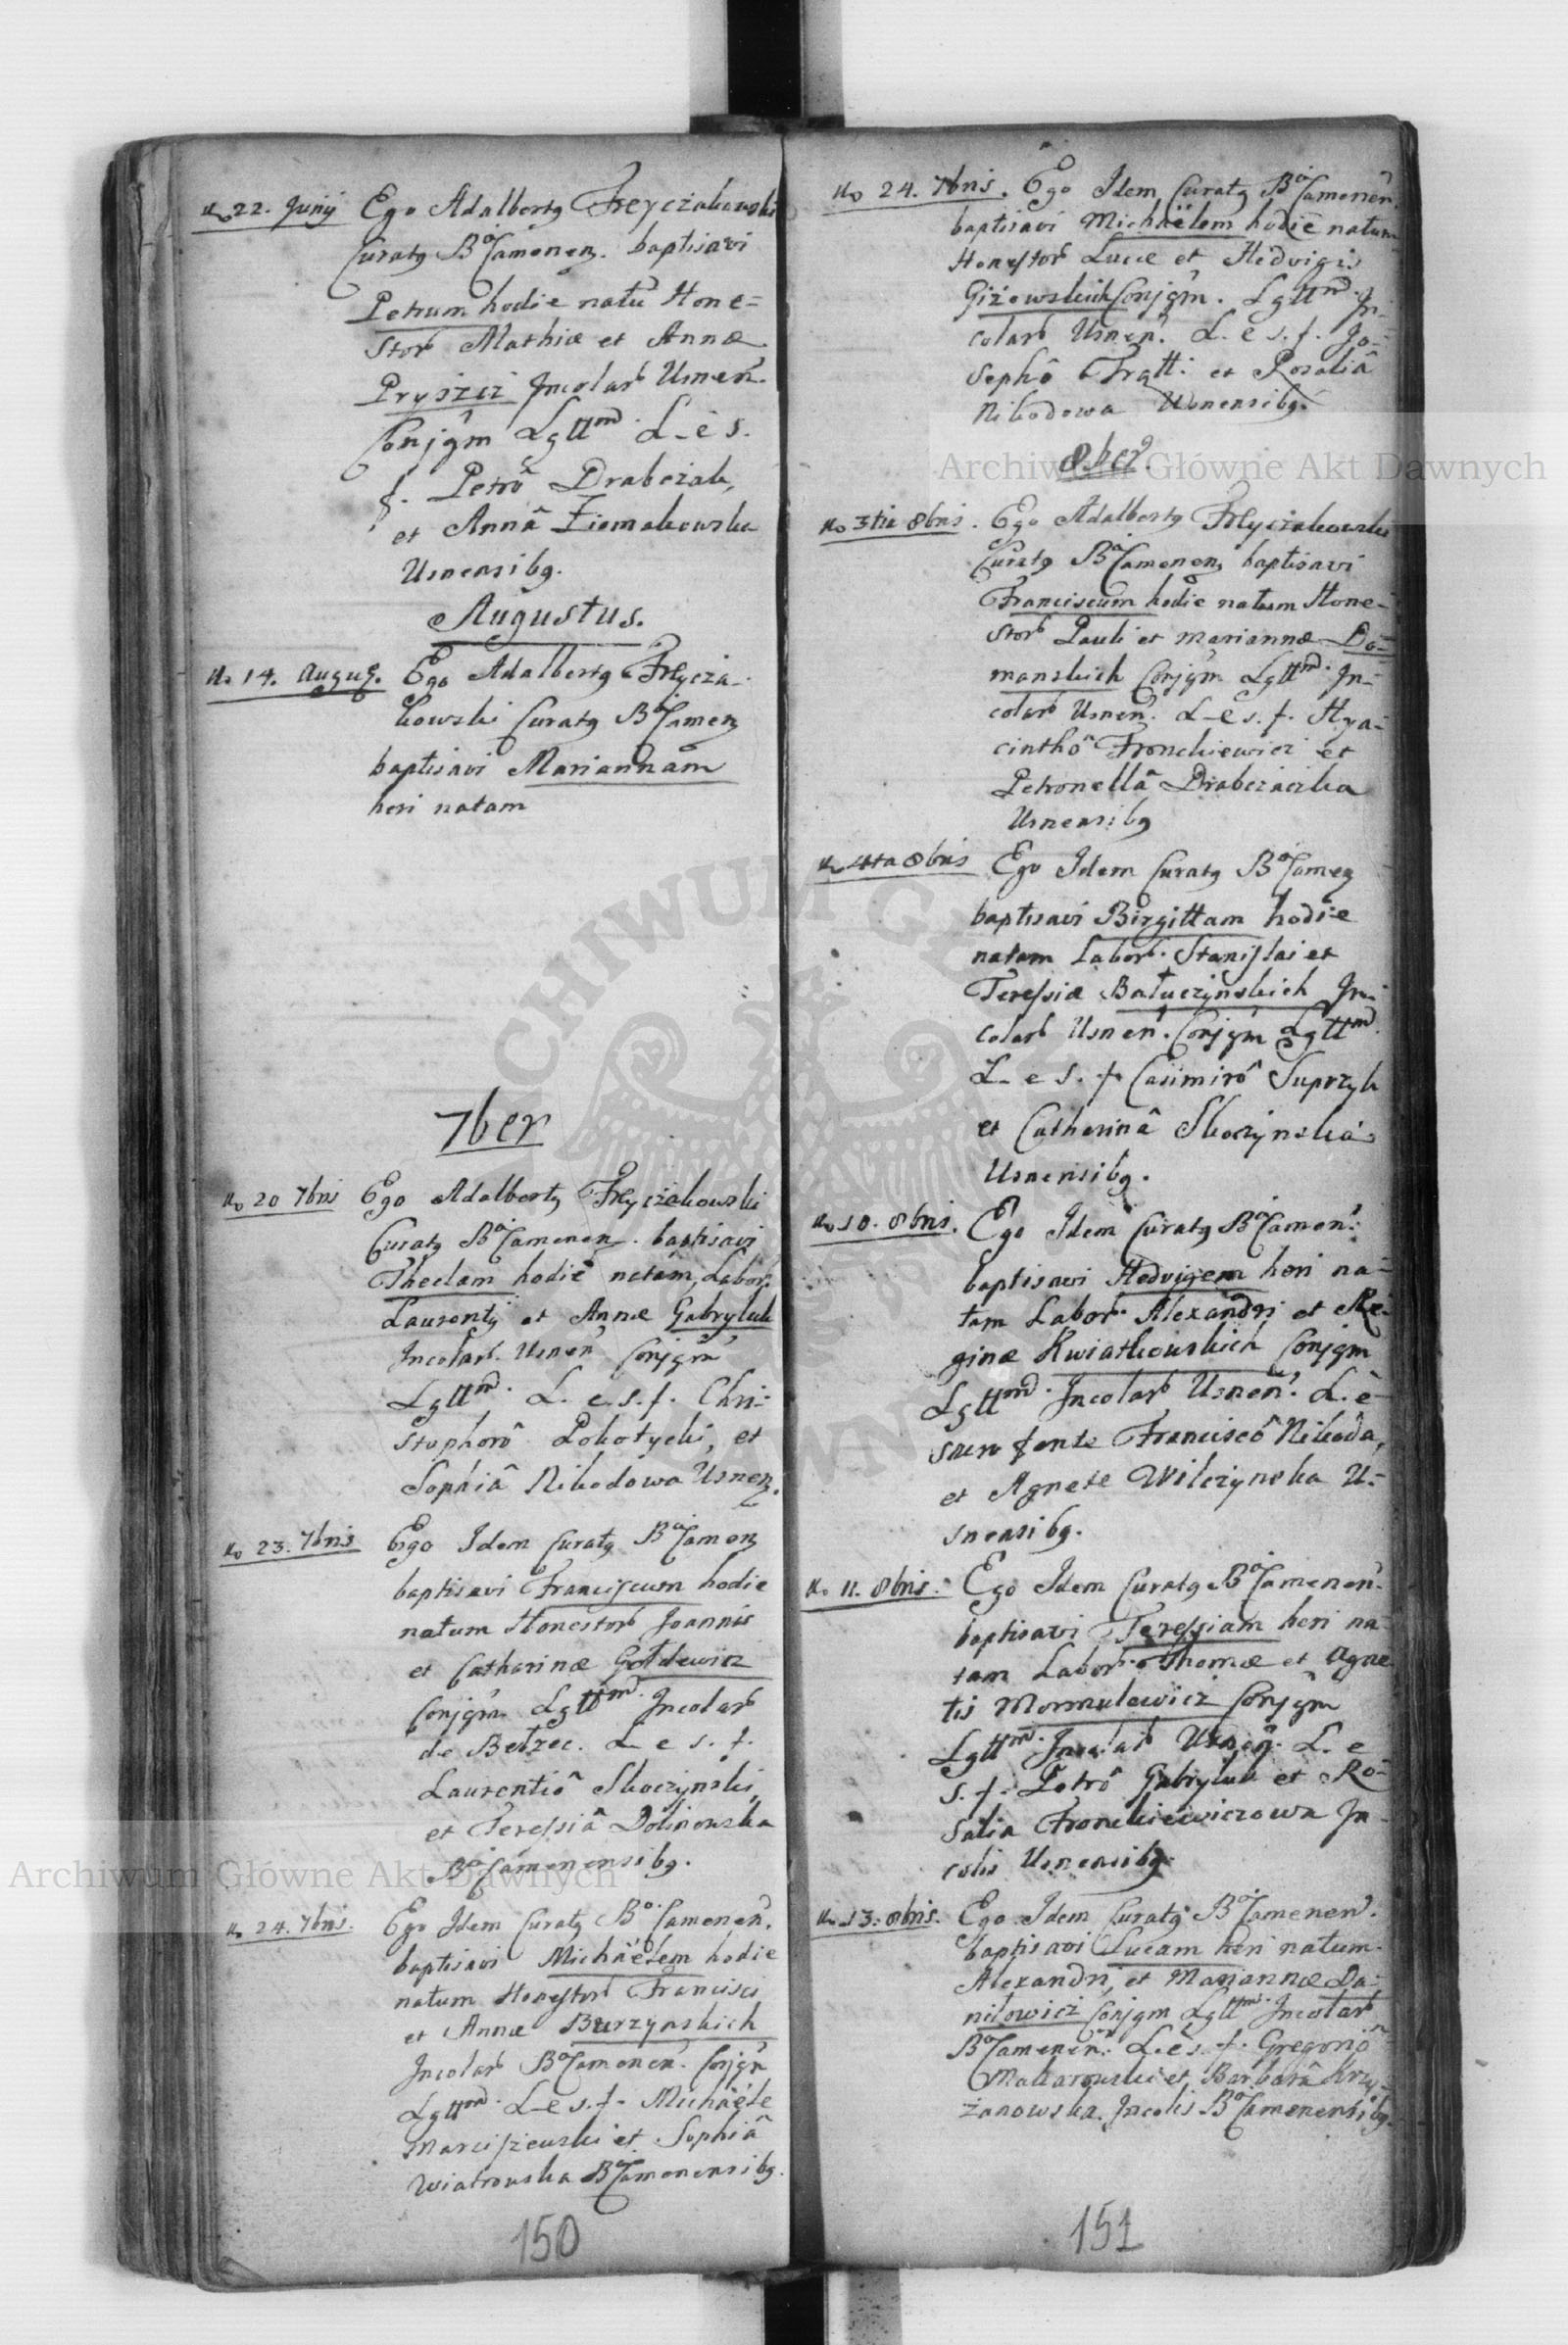 22. Junij Ego Adalbertg Freyczakowski
Curatg BaCamenen. baptisavi
Petrum hodie natū Hone=
stor Mathiæ et Annæ
Pryszcz Incolar Usnen.
Conjgm Lgttm. L. e s.
f. Petrô Drabczak,
et Annâ Ziomakowska
Usnensibg.
Augustus.
14. Augug. Ego Adalbertg Freycza-
kowski Curatg BaCamen
baptisavi Mariannam
heri natam
7ber
20 7bris Ego Adalbertg Freyczakowski
Curatg BaCamenen. baptisavi
Theclam hodie natam, Labor.
Laurentij et Annæ Gabryluk
Incolar. Usnen Conjgm
Lgttm. L. e. s. f. Chri=
stophorô Pokotycki, et
Sophiâ Nikodowa Usnen.
23. 7bris Ego Idem Curatg BaCamen
baptisavi Franciscum hodie
natum Honestor Joannis
et Catharinæ Gołdewicz
Conjgm Lgttm. Incolar
de Bełzec. L e s. f.
Laurentiô Skoczynski,
et Teressiâ Dolinowska
BaCamenensibg.
24. 7bris. Ego Idem Curatg BaCamenen.
baptisavi Michaëlem hodie
natum Honestor Francisci
et Annæ Burzynskich
Incolar BaCamenen. Conjgm
Lgttm. L e s. f. Michaële
Marciszewski et Sophiâ
Wiatrowska BaCamenensibg.
150
24. 7bris. Ego Idem Curatg BaCamenen.
baptisavi Michaëlem hodie natum
Honestor Lucæ et Hedvigis
Giżowskich Conjgm. Lgttm. In=
colar Usnen. L. e s. f. Jo=
sephô Fratt: et Rosaliâ
Nikodowa Usnensibg.
8ber.
3tia 8bris. Ego Adalbertg Freyczakowski
Curatg BaCamenen baptisavi
Franciscum hodie natum Hone=
stor Pauli et mariannæ Do=
manskich Conjgm Lgttm. In=
colar Usnen. L e s. f. Hya=
cinthô Fronckiewicz et
Petronellâ Drabczaczka
Usnensibg
4ta 8bris Ego Idem Curatg BaCamen
baptisavi Birgittam hodie
natam Labor. Stanislai et
Teressiæ Batuczynskich In=
colar Usnen. Conjgm Lgttm.
L. e s. f. Casimirô Suprzyk
et Catharinâ Skoczynska
Usnensibg.
10. 8bris. Ego Idem Curatg BaCamen.
baptisavi Hedvigem heri na=
tam Labor. Alexandri et Re=
ginæ Kwiatkowskich Conjgm
Lgttm. Incolar Usnen. L. e
sacro fonte Franciscô Nikoda,
et Agnete Wilczynska U=
snensibg.
11. 8bris. Ego Idem Curatg BaCamenen.
baptisavi Teressiam heri na=
tam Labor. Thomæ et Agne
tis Mormulewicz Conjgm
Lgttm. Incolar Usnen. L. e
s. f. Petrô Gabryluk et Ro=
salia Fronckiewiczowa In=
colis Usnensibg.
13. 8bris. Ego Idem Curatg BaCamenen.
baptisavi Lucam heri natum
Alexandri, et Mariannæ Da=
niłowicz Conjgm Lgttm. Incolar
BaCamenen. L. e s. f. Gregorio
Makarowski et Barbarâ Krzy=
żanowska. Incolis BaCamenensibg.
151
Archiwum Główne Akt Dawnych
Archiwum Główne Akt Dawnych